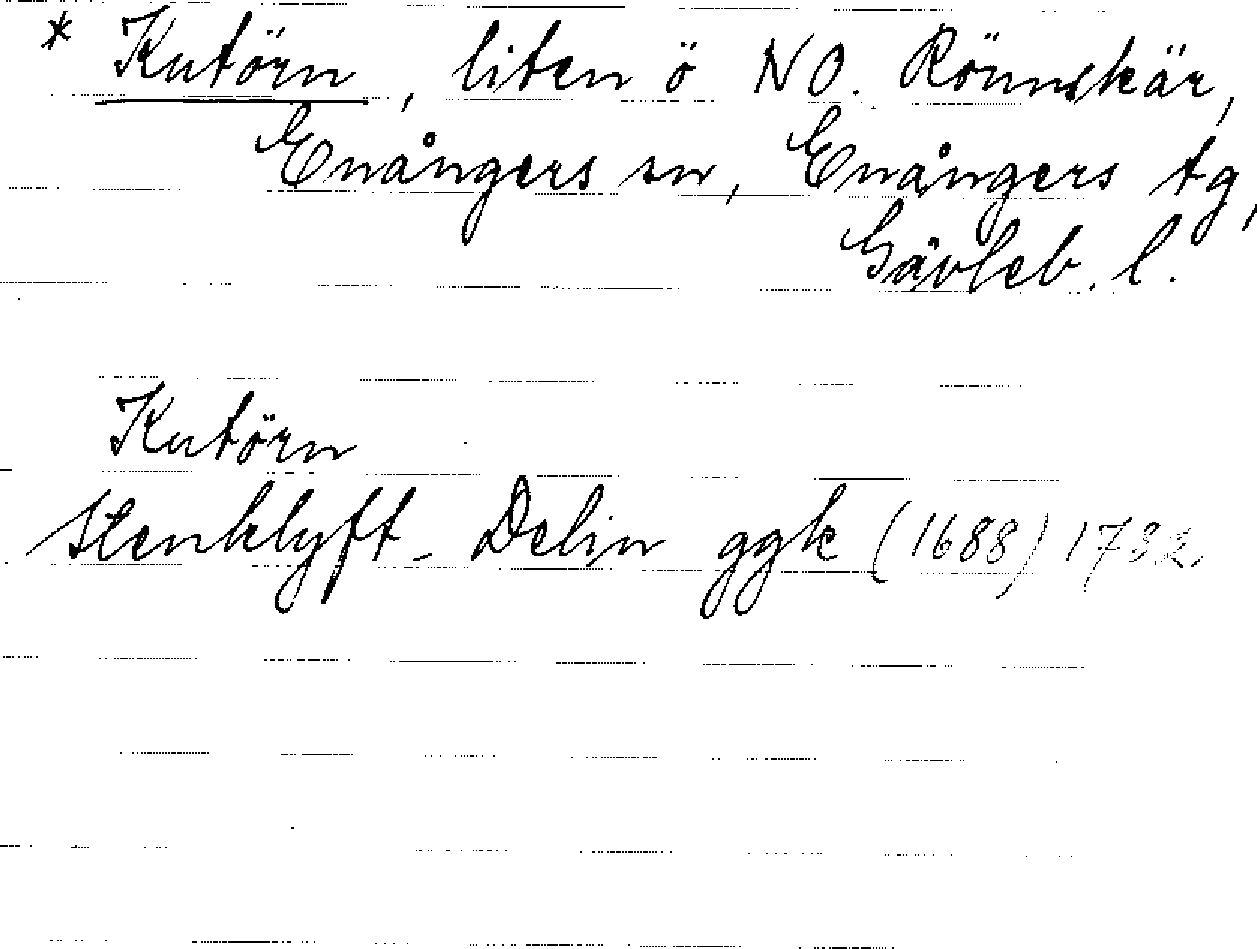 * Kutörn, liten ö NO. Rönnskär,
Enångers sn, Enångers tg,
Gävleb. l.
Kutörn
Stenklyft - Delin ggk (1688) 1732.